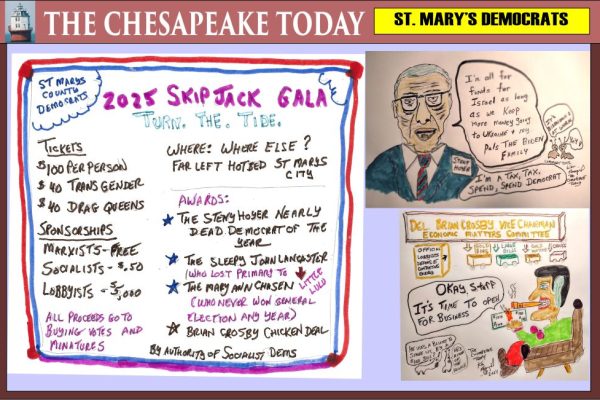 THE CHESAPEAKE TODAY
ST. MARY'S DEMOCRATS
ST MARYS
COUNTY
DEMOCRATS
2025 SKIPJACK GALA
TURN. THE. TIDE.
TICKETS
$100 PER PERSON
$40 TRANS GENDER
$40 DRAG QUEENS
SPONSORSHIPS
MARXISTS - FREE
SOCIALISTS - $.50
LOBBYISTS - $5,000
ALL PROCEEDS GO TO
BUYING VOTES AND
MINATURES
WHERE: WHERE ELSE?
FAR LEFT HOTBED ST MARYS
CITY
AWARDS:
THE STENY HOYER NEARLY
DEAD DEMOCRAT OF THE
YEAR
THE SLEEPY JOHN LANCASTER
(WHO LOST PRIMARY TO
LITTLE
LULU
THE MARY ANN CHASEN
(WHO NEVER WON GENERAL
ELECTION ANY YEAR)
BRIAN CROSBY CHICKEN DEAL
BY AUTHORITY OF SOCIALIST DEMS
I'm all for
funds for
Israel as long
as we keep
more money going
to Ukraine + my
pals THE BIDEN
FAMILY
STENY
HOYER
I'm A TAX, TAX,
SPEND, SPEND DEMOCRAT
DEL. BRIAN CROSBY VICE CHAIRMAN
ECONOMIC MATTERS COMMITTEE
OFFICIAL
LOBBYISTS
OKAY, STAFF
IT'S TIME TO OPEN
FOR BUSINESS